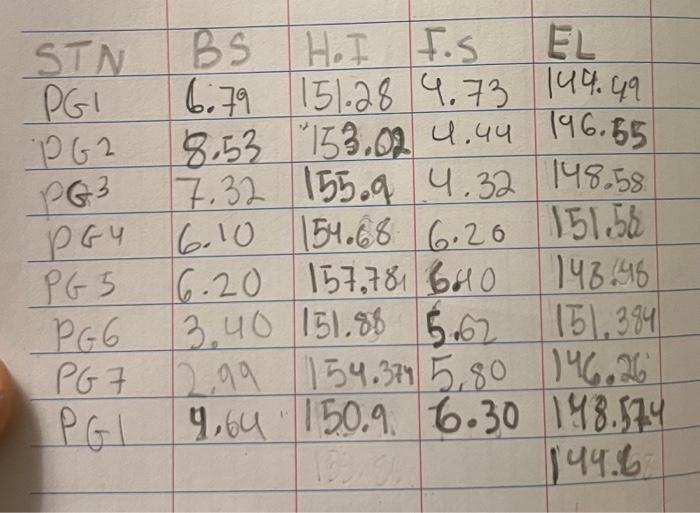 STN BS H.I F.S EL
PG1 6.79 151.28 4.73 144.49
PG2 8.53 153.02 4.44 146.55
PG3 7.32 155.9 4.32 148.58
PG4 6.10 154.68 6.20 151.58
PG5 6.20 157.781 6.40 148.48
PG6 3.40 151.88 5.62 151.384
PG7 2.99 154.374 5.80 146.26
PG1 4.64 150.9 6.30 148.574
144.6